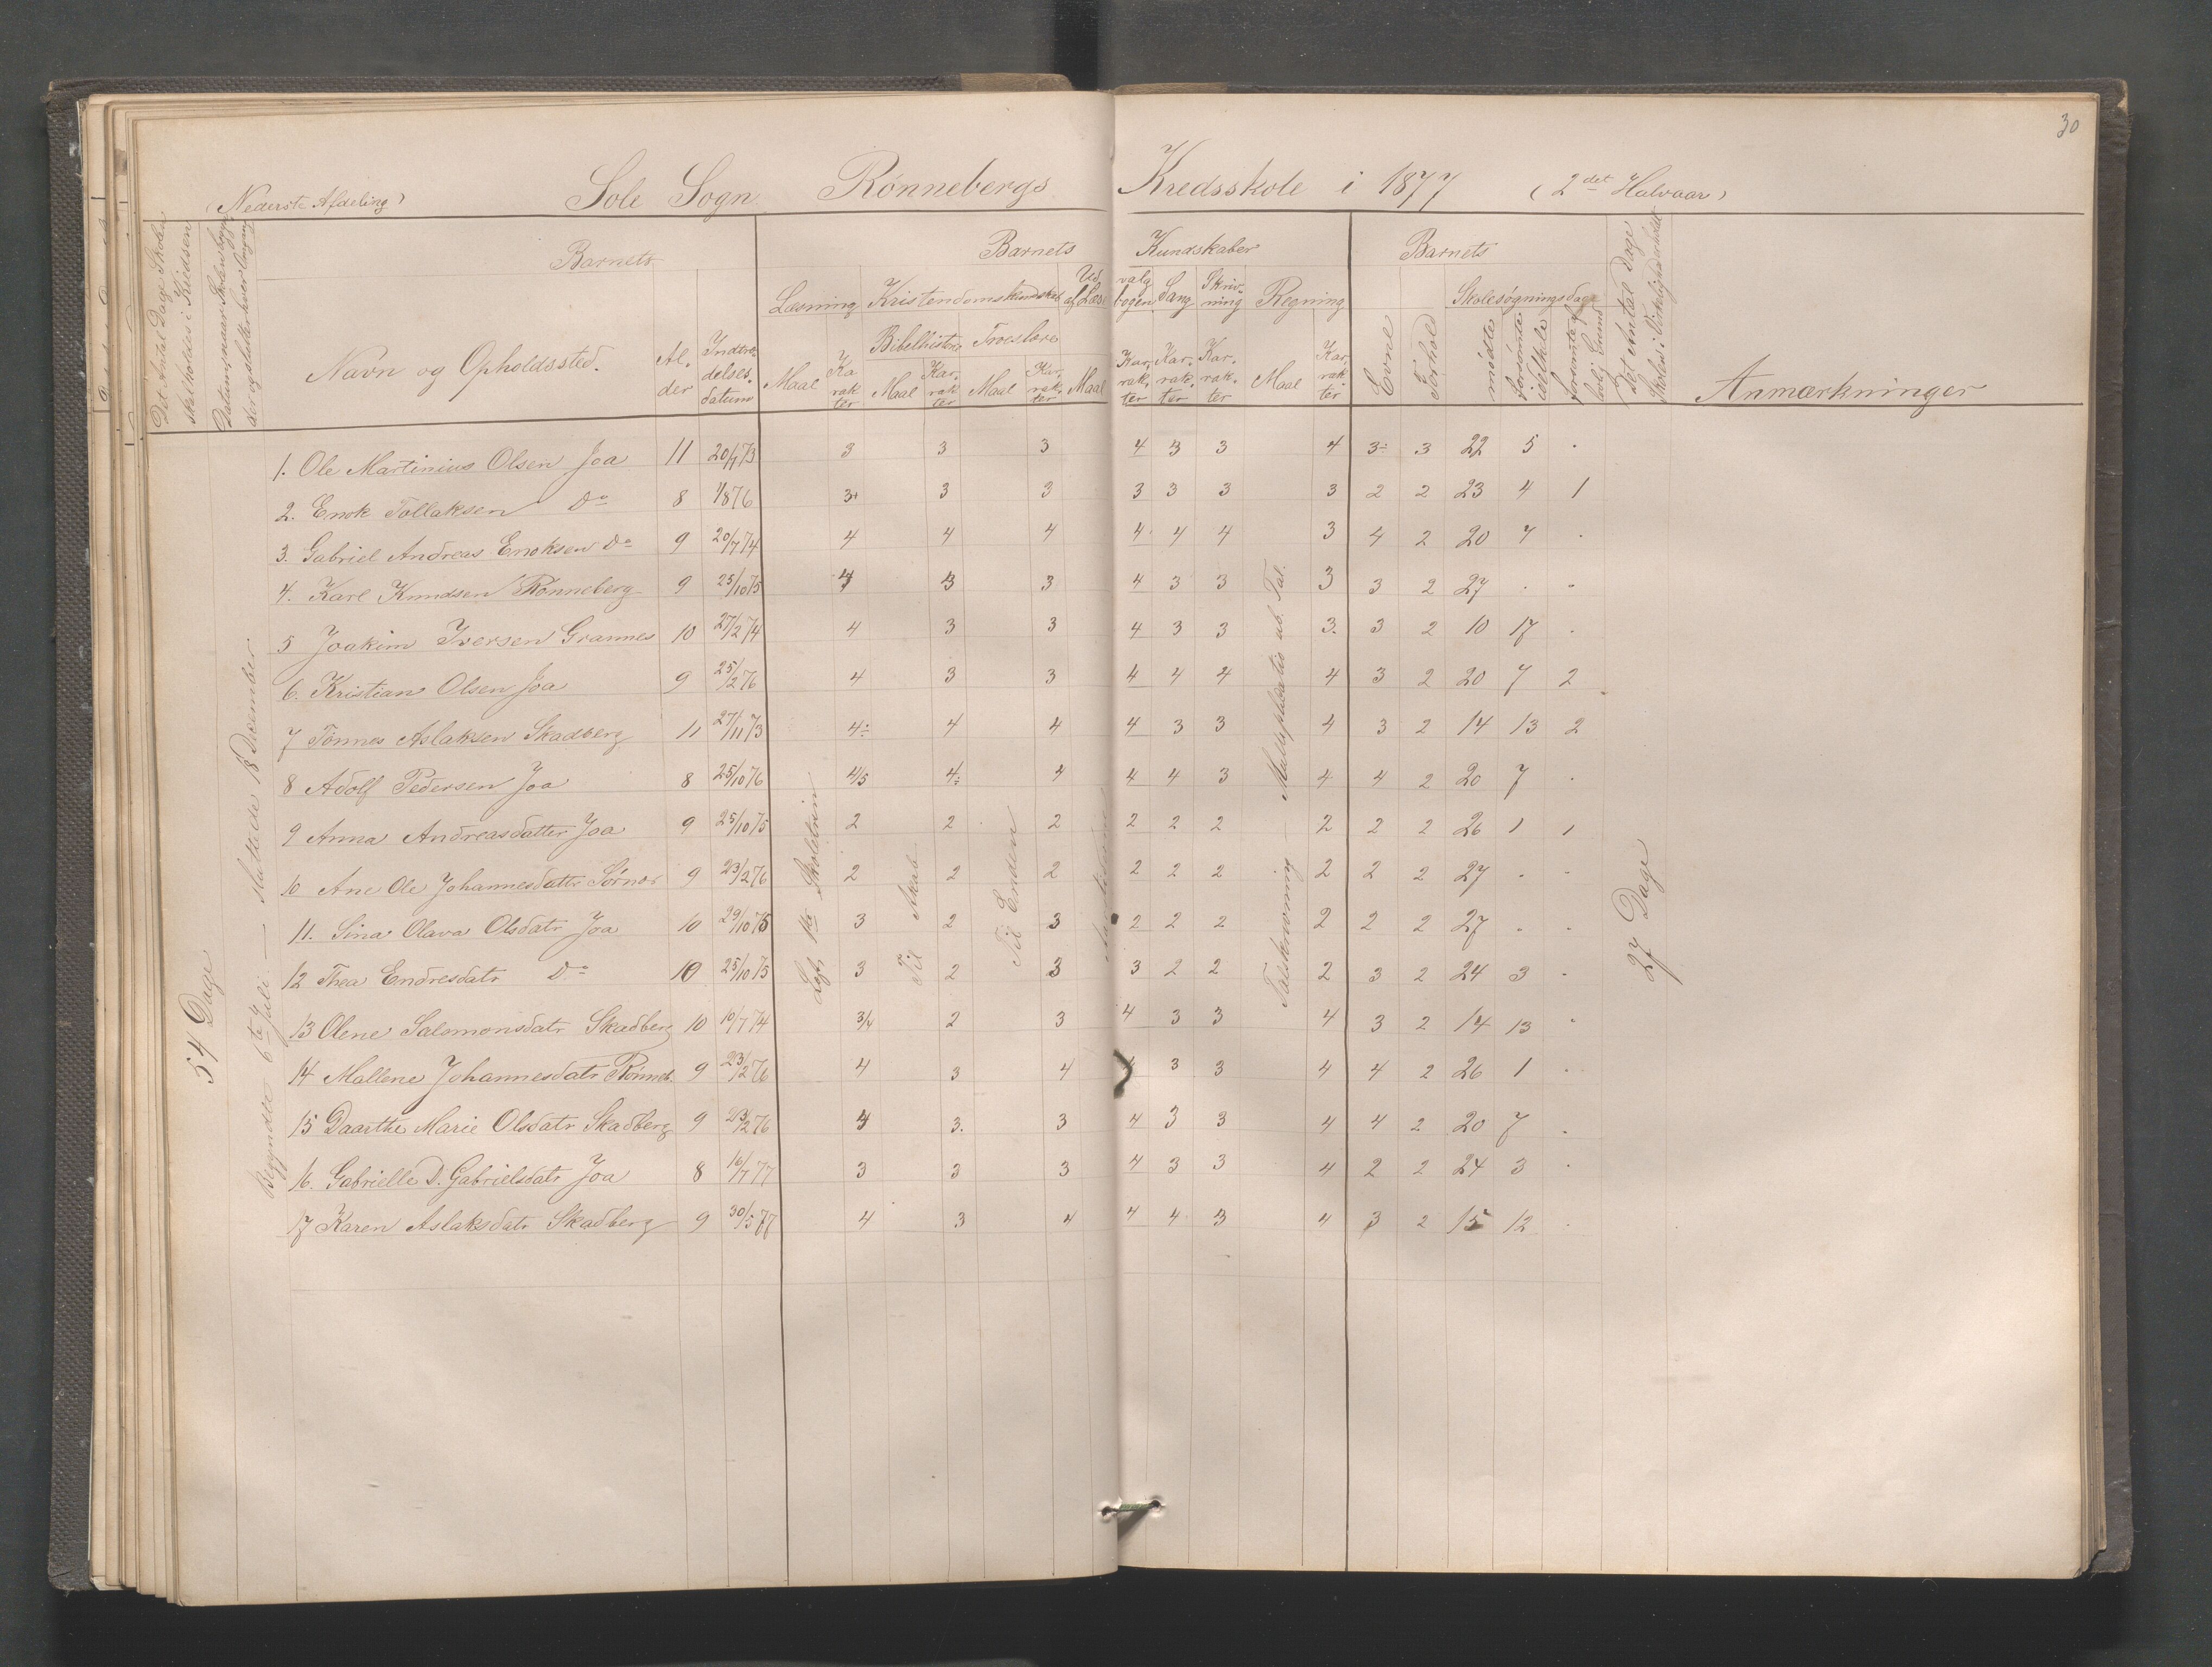 30
(Nederste Afdeling) Sole Sogn Rønnebergs Kredsskole i 1877 (2det Halvaar)
Det Antal Dage Skolen skal holdes i Kredsen
Barnets
Navn og Opholdssted.
Alder
Indtrædelsesdatum
Barnets Kundskaber
Læsning Kristendomskundskab Udvalg af Læsebogen Sang Skrivning Regning
Bibelhistorie Troeslære
Maal Karakter Maal Karakter Maal Karakter Maal Karakter Karakter Karakter Maal Karakter
Barnets
Evne Forhold
Skolesøgningsdage
mødte forsømte
Det Antal Dage Skolen i Virkelighed er holdt
Anmærkninger
54 Dage
Begyndte 6te Juli. — sluttede 13 December.
1. Ole Martinius Olsen Joa 11 20/7 73 3 3 3 4 3 3 4 3÷ 3 22 5 .
2. Enok Tollaksen Do 8 1/8 76 3+ 3 3 3 3 3 3 2 2 23 4 1
3. Gabriel Andreas Enoksen Do 9 20/7 74 4 4 4 4 4 4 3 4 2 20 7 .
4. Karl Knudsen Rønneberg 9 25/10 75 4 3 3 4 3 3 3 3 2 27 . .
5 Joakim Iversen Grannes 10 27/2 74 4 3 3 4 3 3 3. 3 2 10 17 .
6. Kristian Olsen Joa 9 25/2 76 4 3 3 4 4 4 4 3 2 20 7 2
7 Tønnes Aslaksen Skadberg 11 27/11 73 4÷ 4 4 4 3 3 4 3 2 14 13 2
8 Adolf Pedersen Joa 8 25/10 76 4/5 4÷ 4 4 4 3 4 4 2 20 7 .
9 Anna Andreasdatter Joa 9 25/10 75 2 2 2 2 2 2 2 2 2 26 1 1
10 Ane Ole Johannesdattr Sørnes 9 23/2 76 2 2 2 2 2 2 2 2 2 27 . .
11. Sina Olava Olsdatr Joa 10 29/10 75 3 2 3 2 2 2 2 2 2 27 . .
12 Thea Endresdatr Do 10 25/10 75 3 2 3 3 2 2 2 3 2 24 3 .
13 Olene Salomonsdatr Skadberg 10 10/7 74 3/4 2 3 4 3 3 4 3 2 14 13 .
14 Mallene Johannesdatr Rønneb. 9 23/2 76 4 3 4 4 3 3 4 4 2 26 1 .
15 Daarthe Marie Olsdatr Skadberg 9 23/2 76 4 3. 3 4 3 3 4 4 2 20 7 .
16. Gabrielle D. Gabrielsdatr Joa 8 16/7 77 3 3 3 4 3 3 4 2 2 24 3 .
17 Karen Aslaksdatr Skadberg 9 30/5 77 4 3 4 4 4 3 4 3 2 15 12 .
Skoletrin
Til Akab
Til Enden
Talskrivning Multiplicatio ub. Tal.
27 Dage